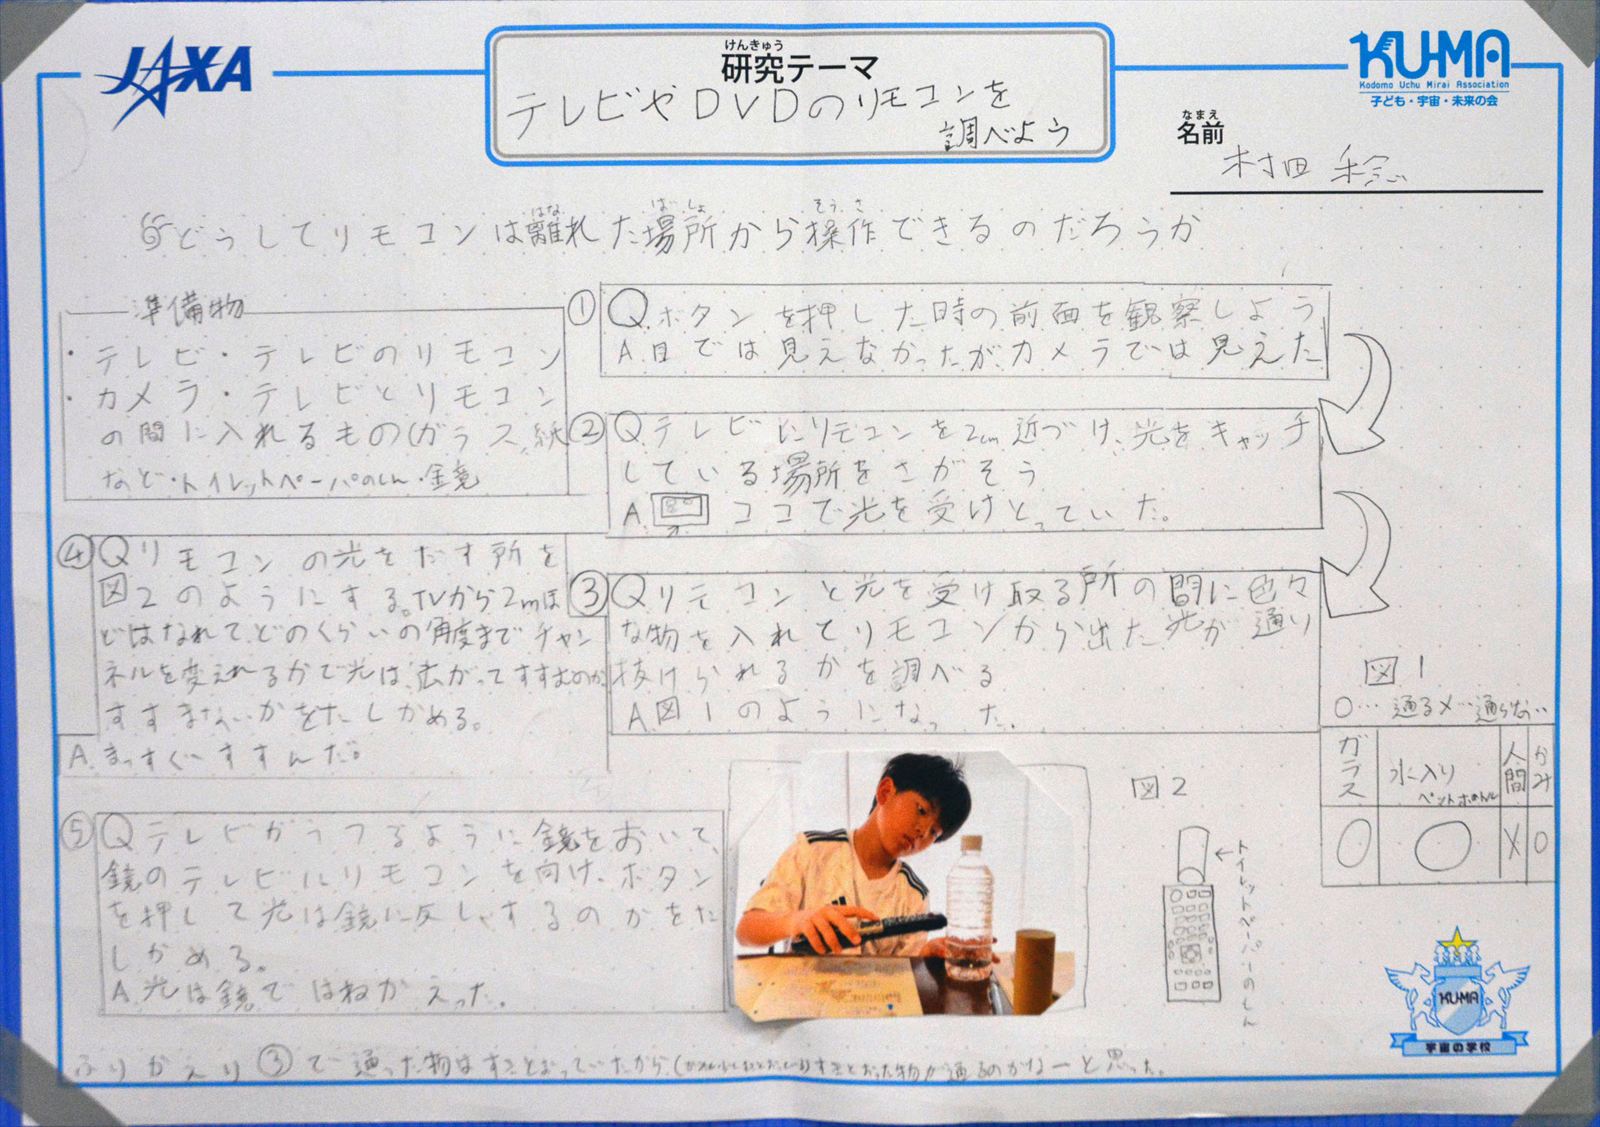 JAXA
けんきゅう
研究テーマ
テレビやDVDのリモコンを
調べよう
KU-MA
Kodomo Uchu Mirai Association
子ども・宇宙・未来の会
なまえ
名前
村田
どうしてリモコンは離れた場所から操作できるのだろうか
はな
ばしょ
そうさ
準備物
・テレビ・テレビのリモコン
・カメラ・テレビとリモコン
の間に入れるもの(ガラス、紙
など・トイレットペーパーのしん・鏡
① Qボタンを押した時の前面を観察しよう
A.目では見えなかったが、カメラでは見えた
② Q.テレビにリモコンを2cm近づけ、光をキャッチ
している場所をさがそう
A. ココで光を受けとっていた。
③ Qリモコンと光を受け取る所の間に色々
な物を入れてリモコンから出た光が通り
抜けられるかを調べる
A図1のようになった。
④ Qリモコンの光をだす所を
図2のようにする。TVから2mほ
どはなれて、どのくらいの角度までチャン
ネルを変えれるかで光は、広がってすすむのか
すすまないかをたしかめる。
A.まっすぐすすんだ。
図1
○…通る×…通らない
ガラス
水入り
ペットボトル
人間
かみ
○ ○ × ○
⑤ Qテレビがうつるように鏡をおいて、
鏡のテレビにリモコンを向け、ボタン
を押して光は鏡に反しゃするのかをた
しかめる。
A.光は鏡ではねかえった。
図2
←トイレットペーパーのしん
KU-MA
宇宙の学校
ふりかえり ③で通った物はすきとおっていたから、すきとおった物が通るのかなーと思った。